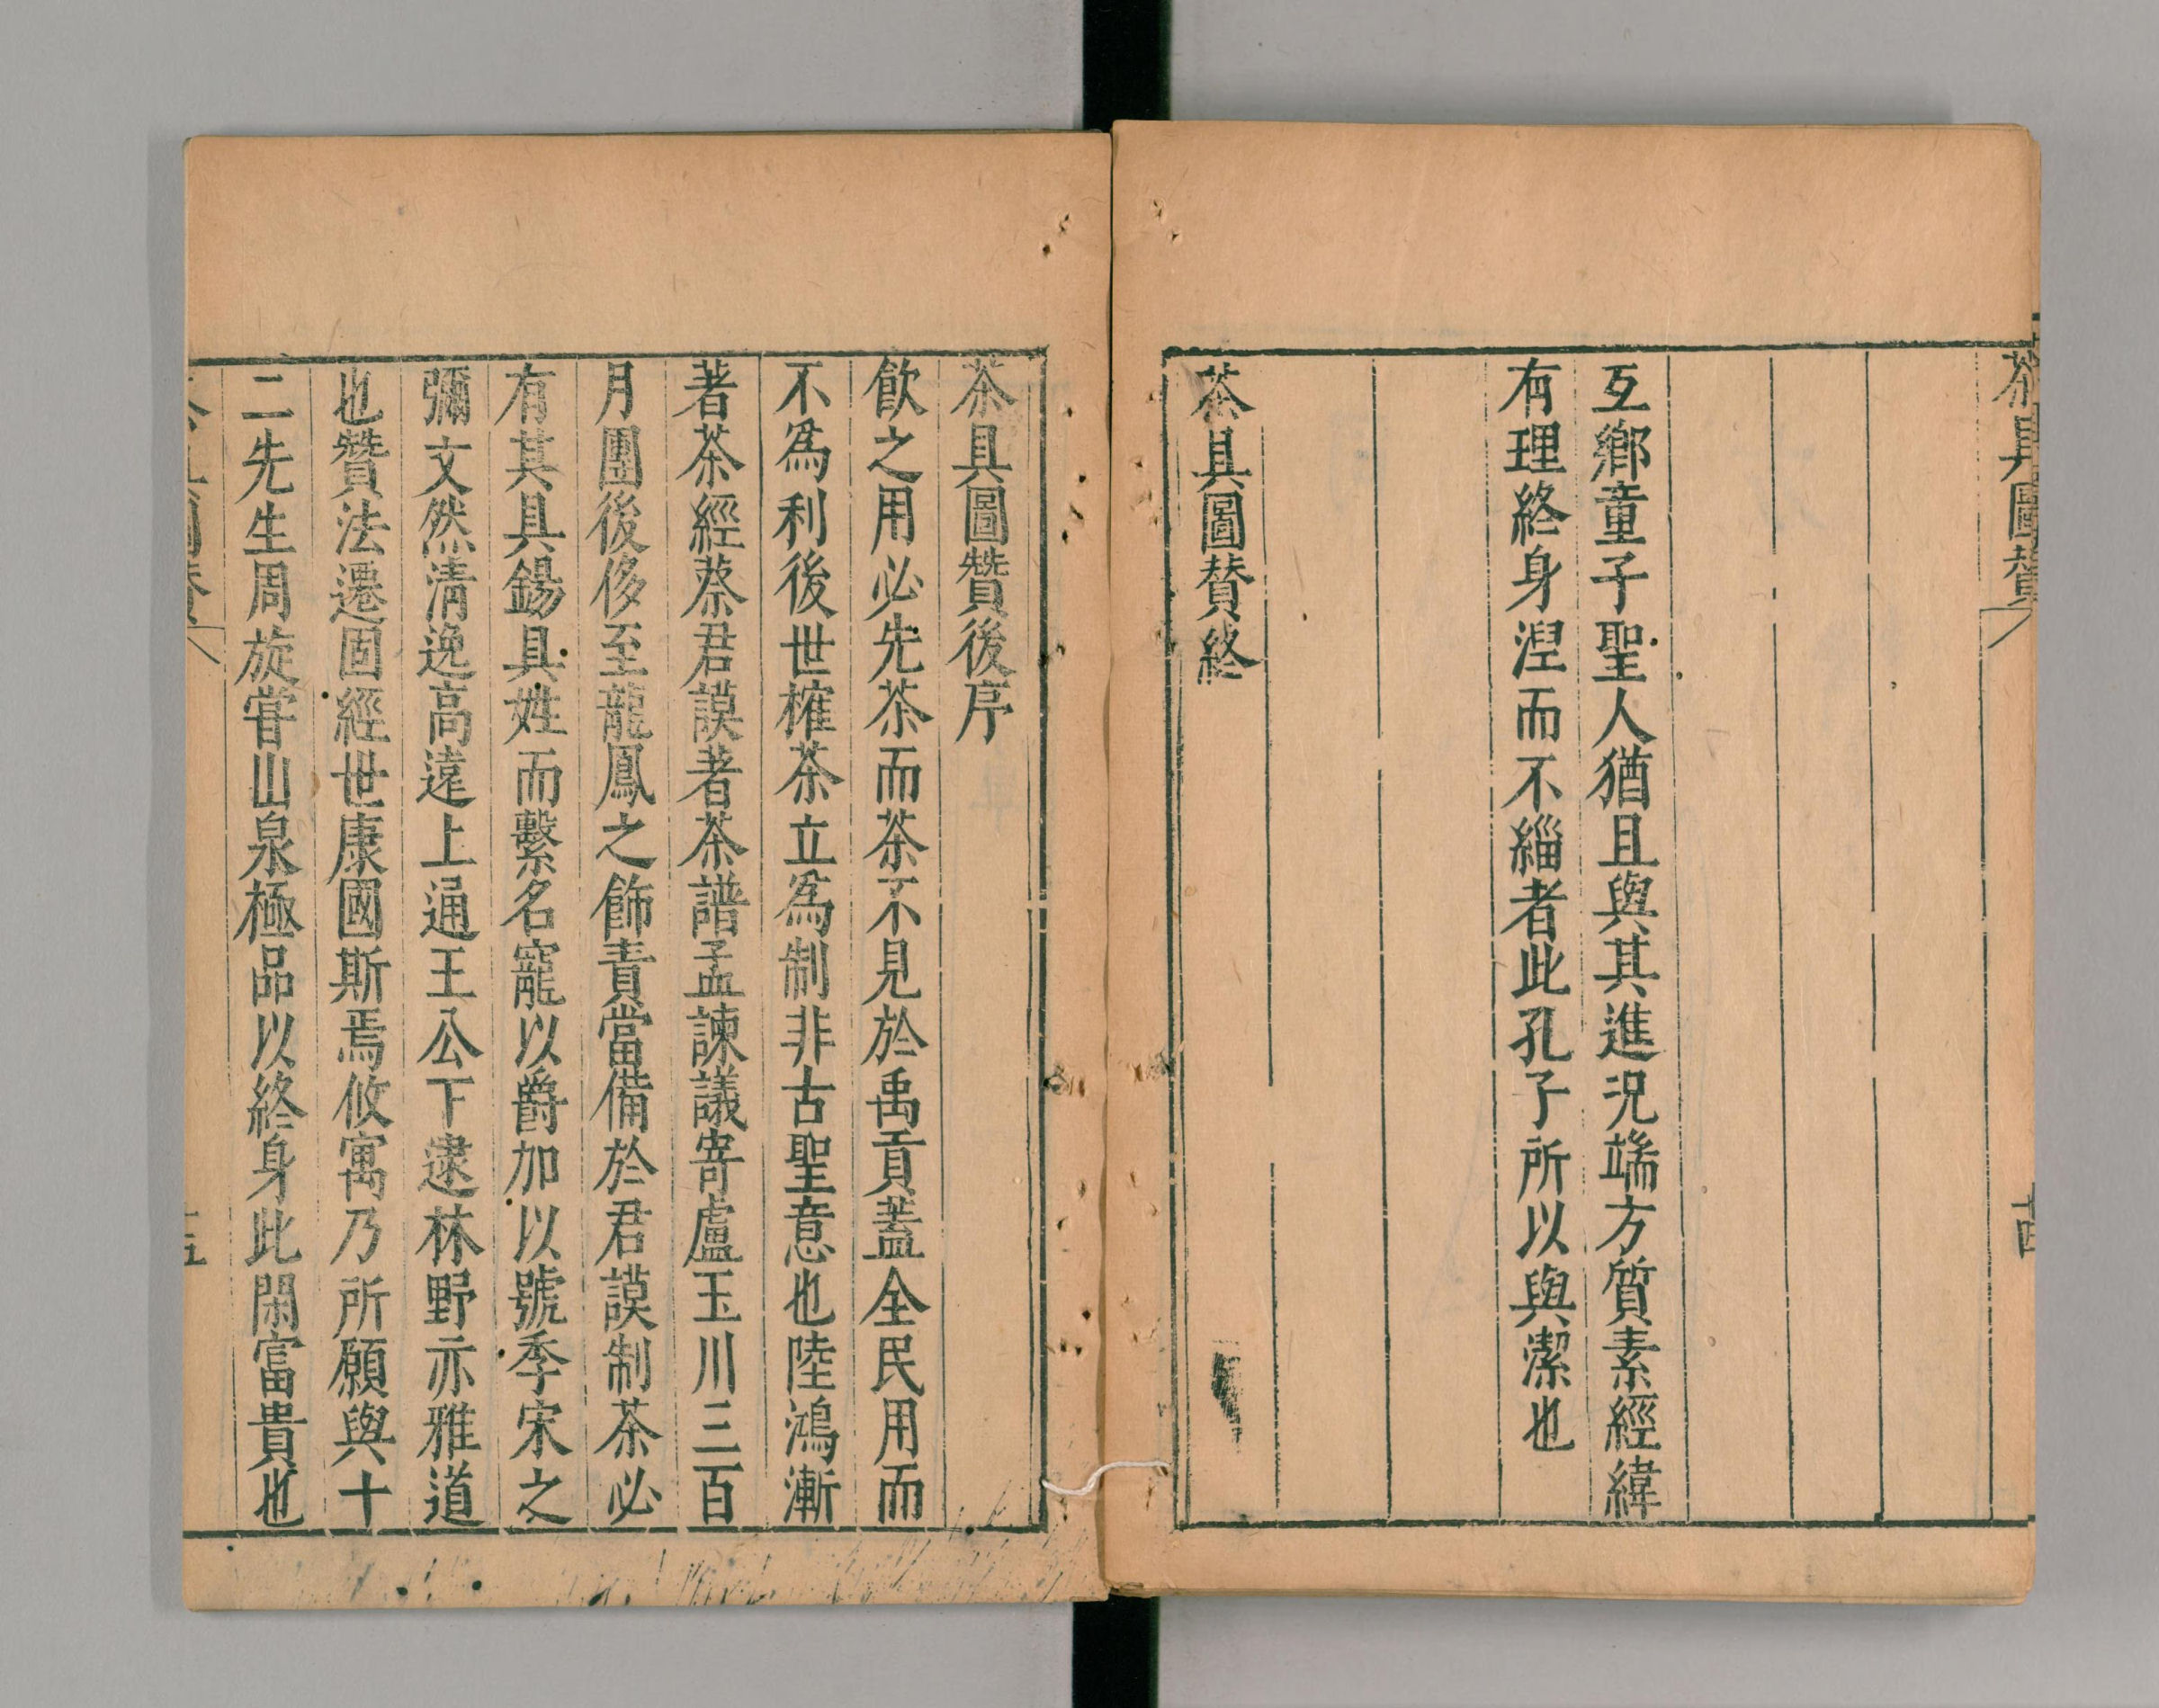 茶具圖贊
十四
互鄉童子聖人猶且與其進況端方質素經緯
有理終身涅而不緇者此孔子所以與潔也
茶具圖賛終
茶具圖贊後序
飲之用必先茶而茶不見於禹貢蓋全民用而
不爲利後世榷茶立爲制非古聖意也陸鴻漸
著茶經蔡君謨著茶譜孟諫議寄盧玉川三百
月團後侈至龍鳳之飾責當備於君謨制茶必
有其具錫具姓而繫名寵以爵加以號季宋之
彌文然清逸高遠上通王公下逮林野亦雅道
也贊法遷固經世康國斯焉攸寓乃所願與十
二先生周旋嘗山泉極品以終身此閑富貴也